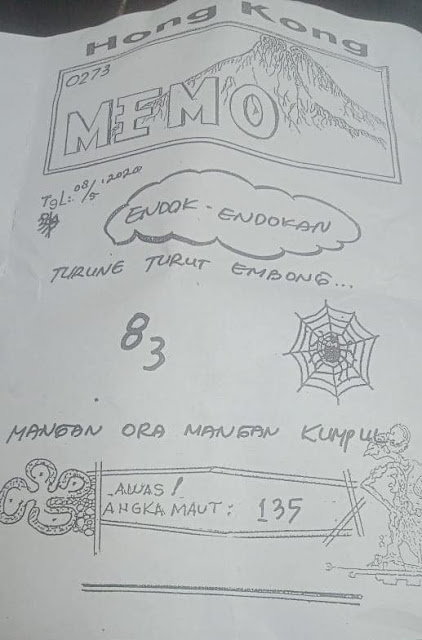 Hong Kong
0273
MEMO
TGL: 08/5 '2020
ENDOK - ENDOKAN
TURUNE TURUT EMBONG...
83
MANGAN ORA MANGAN KUMPUL
AWAS!
ANGKA MAUT: 135